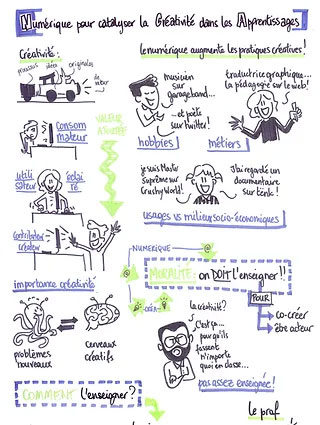 Numérique pour catalyser la Créativité dans les Apprentissages
Créativité :
processus
idées
originales
de valeur
le numérique augmente les pratiques créatives !
musicien
sur
garageband...
...et poète
sur twitter !
hobbies
traductrice graphique...
la pédagogie sur le web !
métiers
consom
mateur
VALEUR
AJOUTÉE
utili
sateur
éclai
ré
contributeur
créateur
je suis Master
Suprême sur
Crushy World !
J'ai regardé un
documentaire
sur
usages vs milieu socio-économiques
NUMERIQUE
MORALITÉ : on DOIT l'enseigner !!
POUR
co-créer
être acteur
importance créativité
problèmes
nouveaux
cerveaux
créatifs
la créativité?
C'est ça...
pour qu'ils
fassent
n'importe
quoi en classe...
pas assez enseignée !
COMMENT l'enseigner ?
le prof